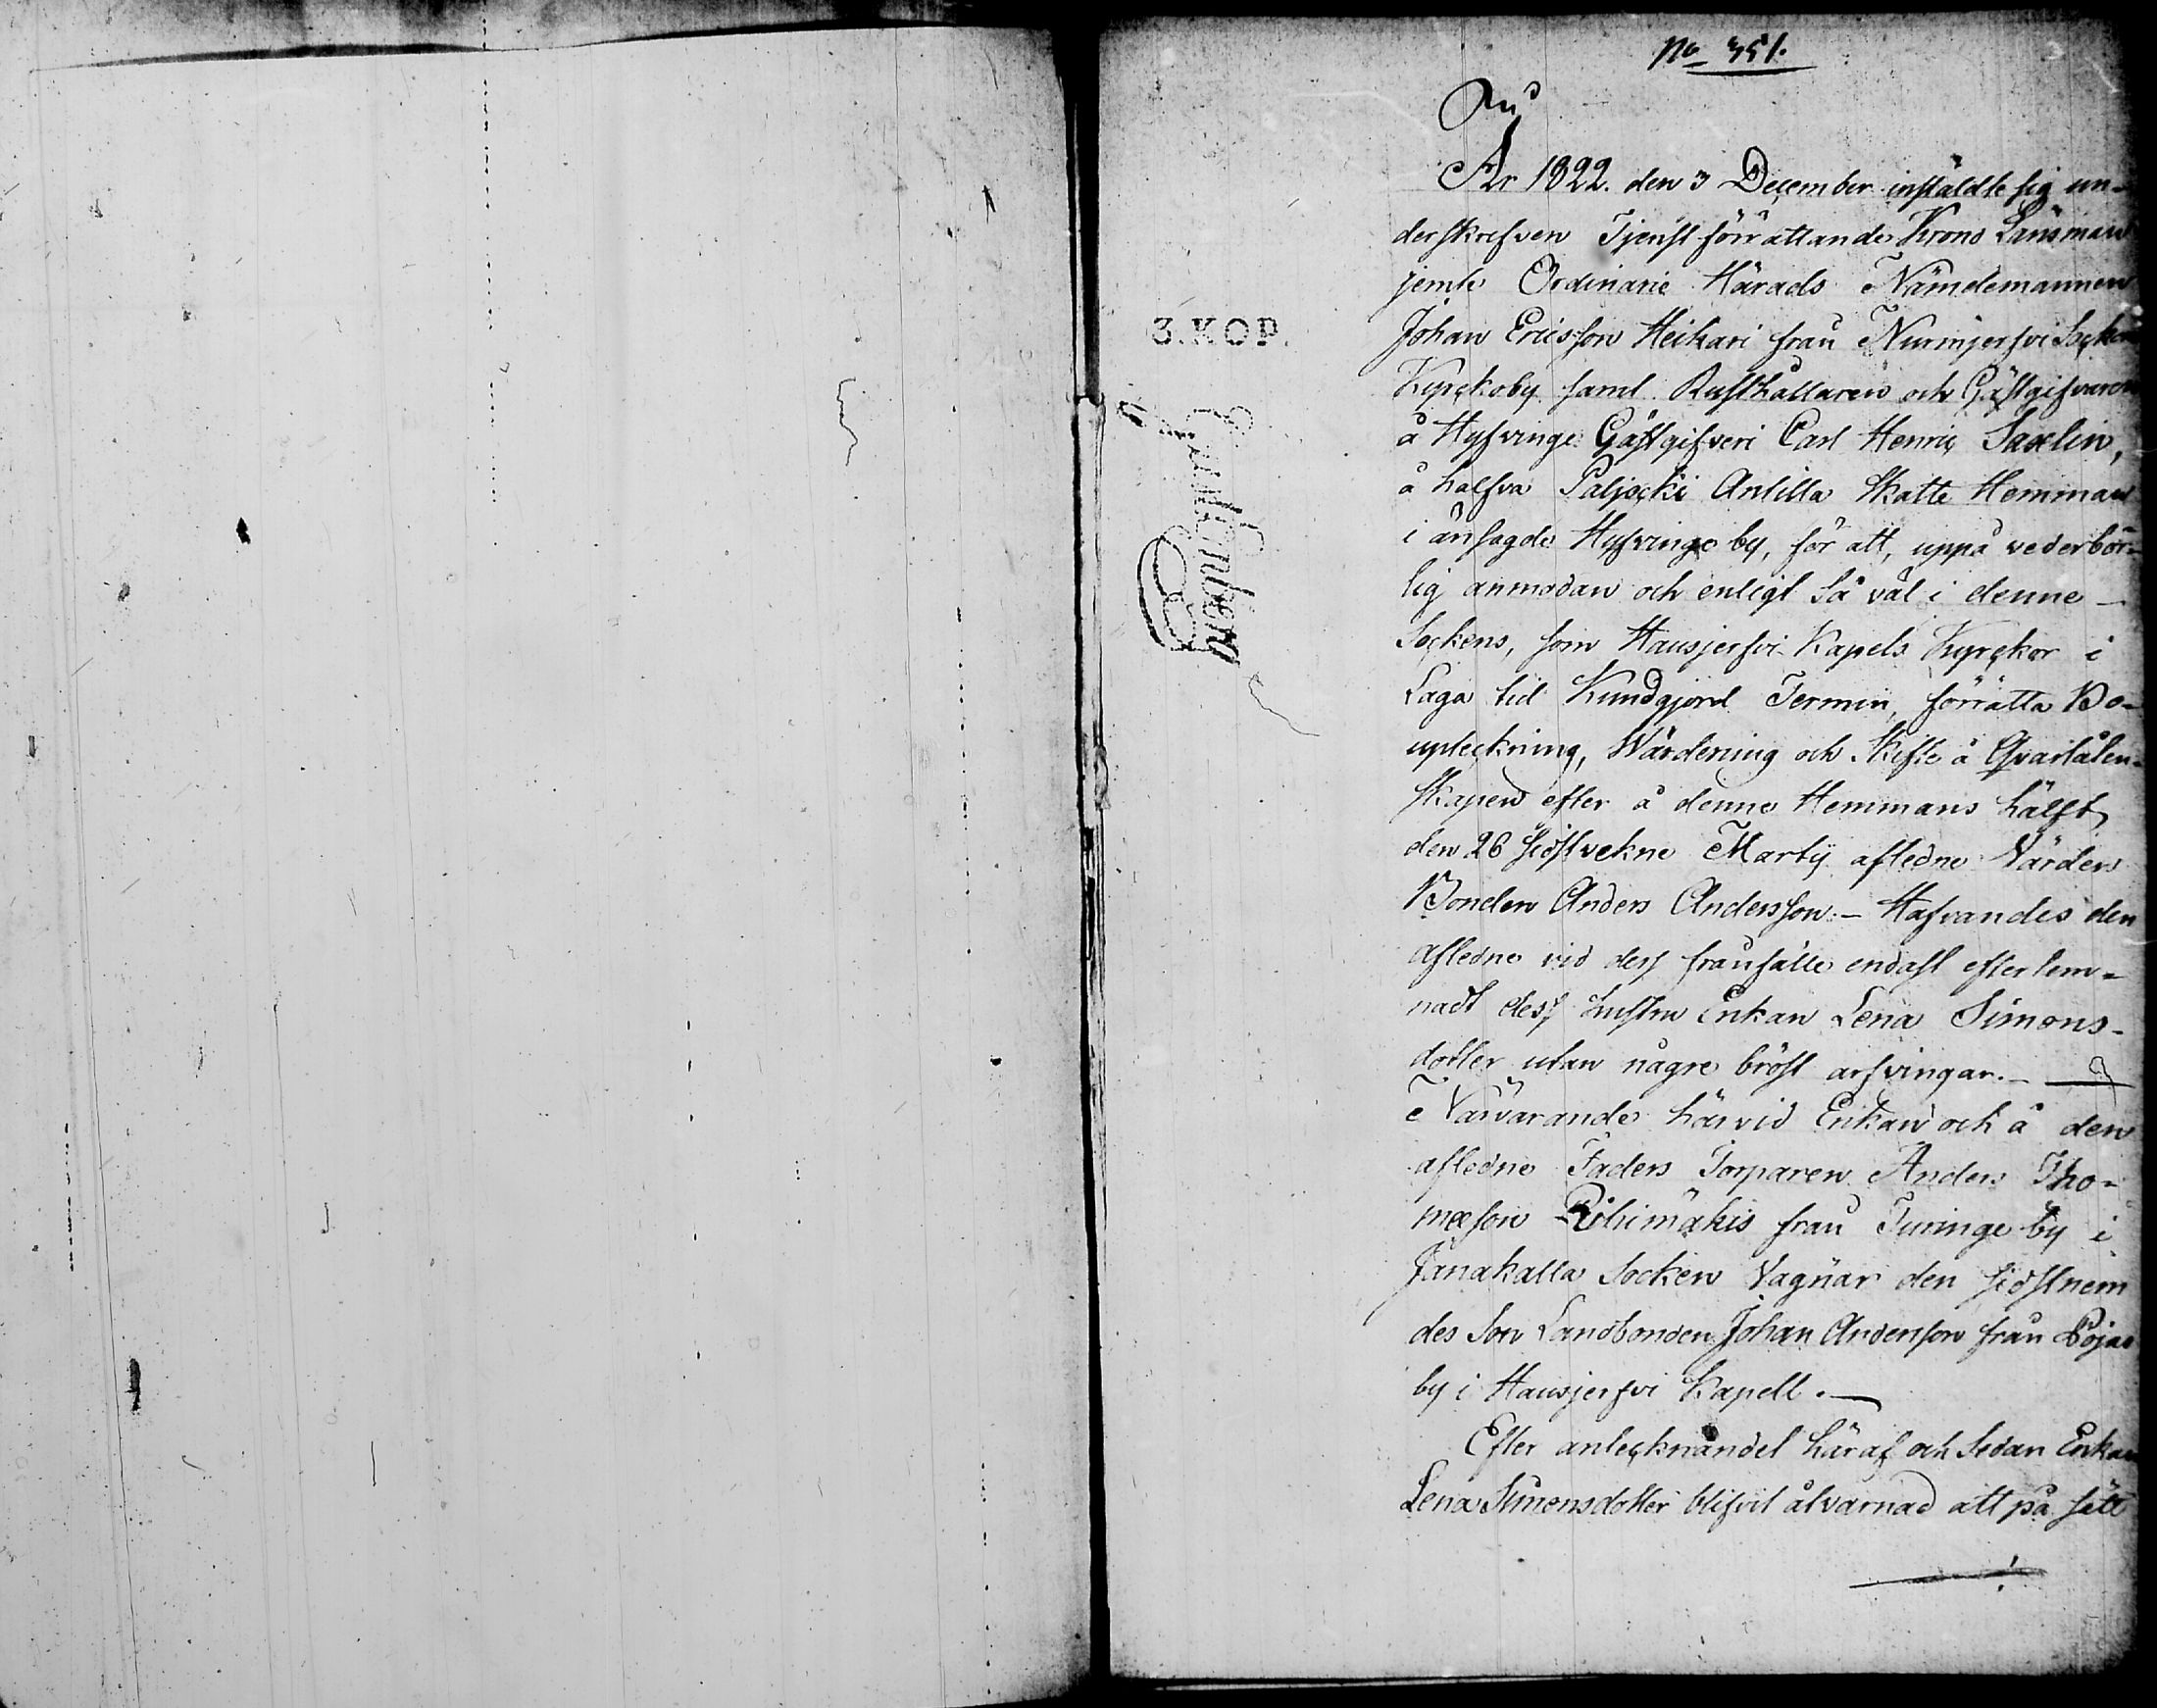 No 351.
År 1822. den 3 December instäldte sig un-
derskrefven Tjenst förrättande Krono Länsman
jemte Ordinarie Härads Nämdemannen
Johan Ericsson Heikari från Nurmjerfvi Socken
Kyrckoby samt Rusthållaren och Gästgifvaren
å Hyfvinge Gästgifveri Carl Henric Saxelin,
å halfva Paljocki Antilla Skatte Hemman
i ånsagde Hyfvinge by, för att, uppå vederbör-
lig anmodan och enligt så väl i denne
Sockens, som Hausjerfvi Kapels Kyrckor i
Laga tid Kundgjord Termin, förrätta Bo-
upteckning, Wärdering och Skifte å Qvarlåten-
skapen efter å denne Hemmans hälft
den 26 sidstvekne Martij afledne Värden
Bonden Anders Andersson. - Hafvandes den
afledne vid dess frånfälle endast efterlem-
nadt dess hustru Enkan Lena Simons-
dotter utan någre bröst arfvingar. -
Närvarande härvid Enkan och å den
afledne Faders Torparen Anders Tho-
mæson Rihimäkis från Turinge by i
Janakalla Socken Vagnar den sidstnem
des Son Landbonden Johan Andersson från
by i Hausjerfvi Kapell. -
Efter antecknandet häraf och Sedan Enkan
Lena Simonsdotter blifvit åtvarnad att på sätt
3. KOP.